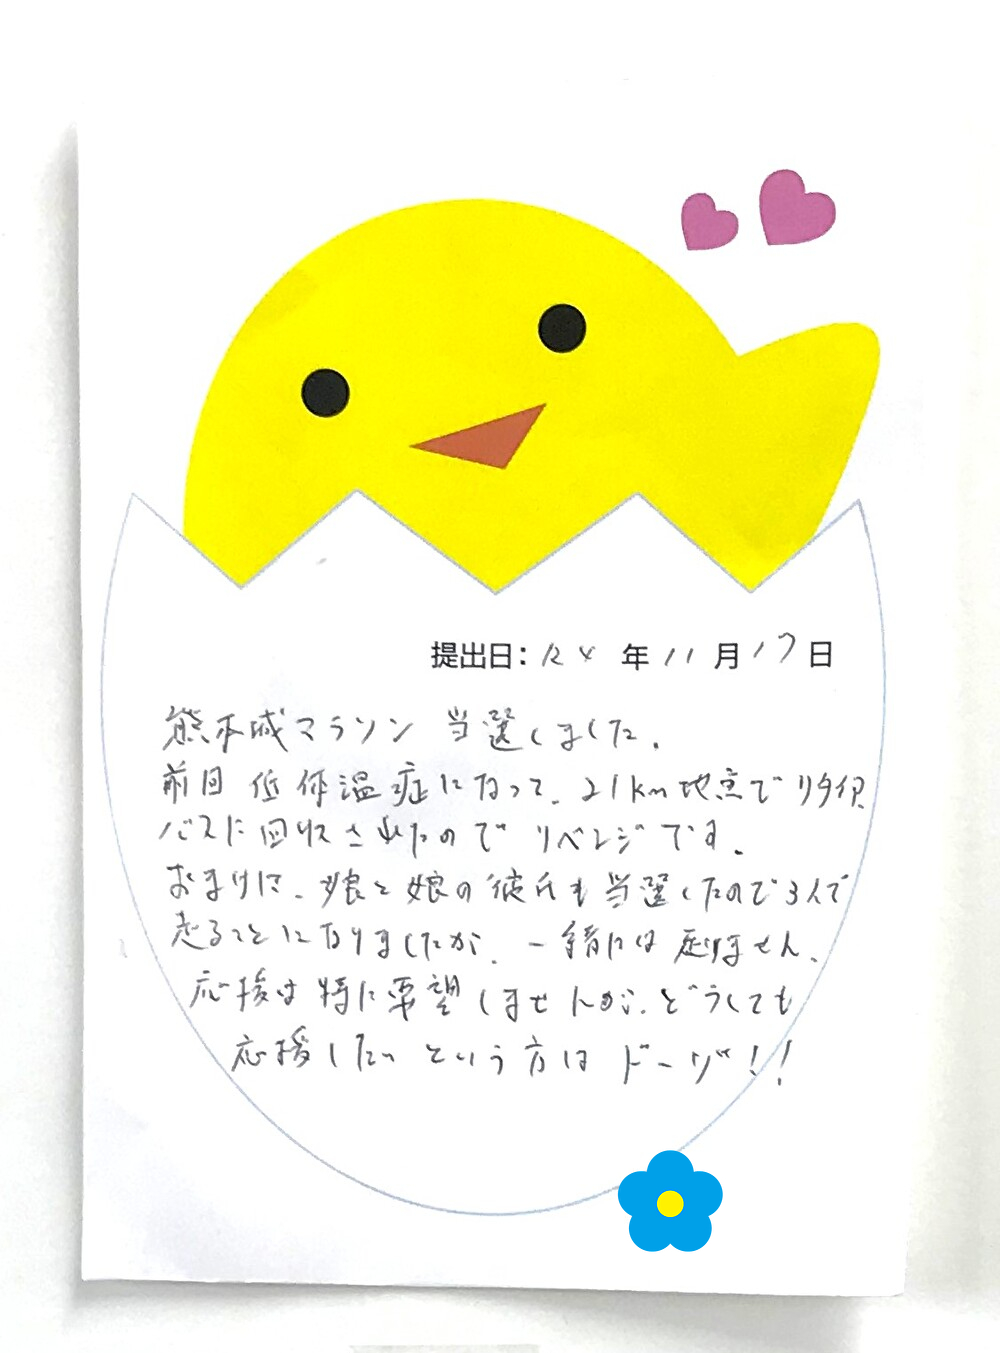 提出日: R4 年 11 月 17 日
熊本城マラソン 当選しました.
前回 低体温症になって、21km地点でリタイア.
バスに回収されたので リベンジです.
おまけに、娘と娘の彼氏も当選したので3人で
走ることになりましたが、一緒には走りません.
応援は特に要望しませんが、どうしても
応援したい という方は ドーゾ!!